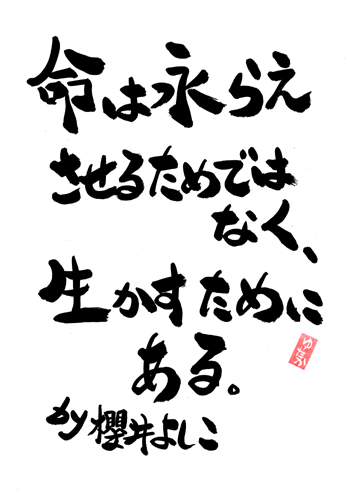 命は永らえ
させるためでは
なく、
生かすために
ある。
by 櫻井よしこ
ゆたか